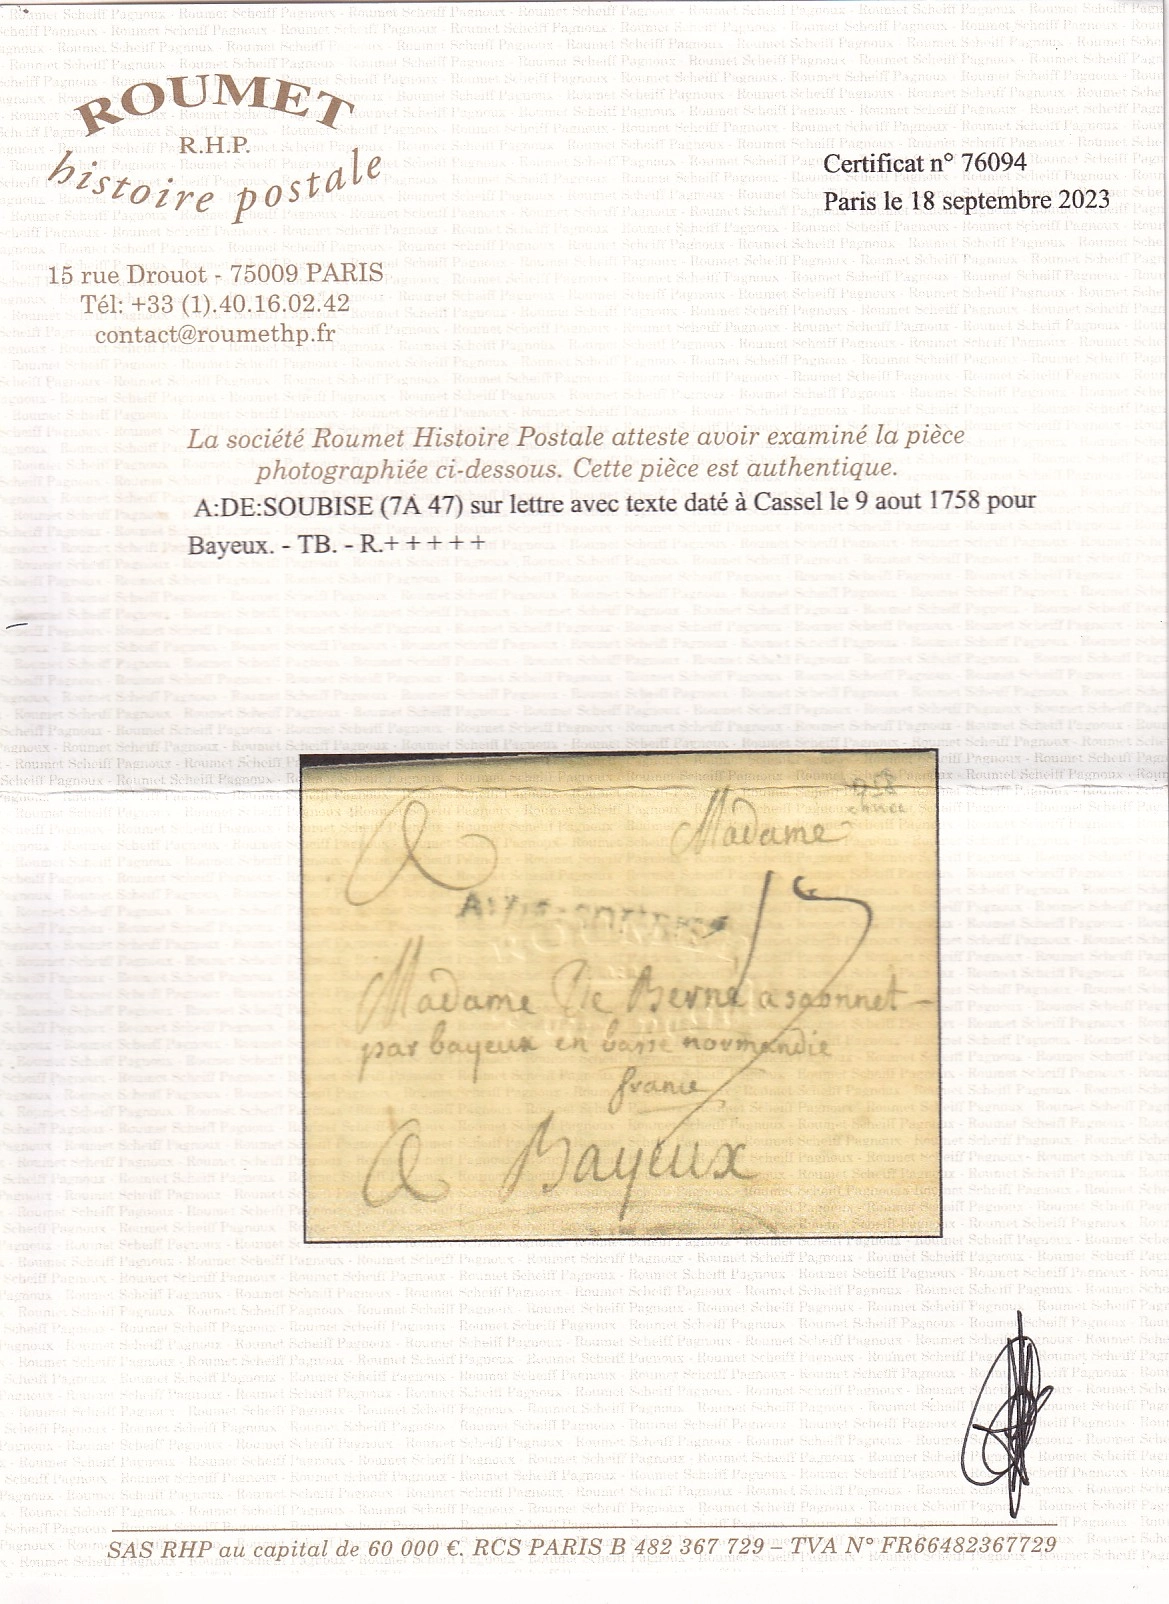 ROUMET
R.H.P.
histoire postale
15 rue Drouot - 75009 PARIS
Tél: +33 (1).40.16.02.42
contact@roumethp.fr
Certificat n° 76094
Paris le 18 septembre 2023
La société Roumet Histoire Postale atteste avoir examiné la pièce
photographiée ci-dessous. Cette pièce est authentique.
A:DE:SOUBISE (7A 47) sur lettre avec texte daté à Cassel le 9 aout 1758 pour
Bayeux. - TB. - R.+ + + + +
A Madame
A:DE:SOUBISE
Madame De Berne
par bayeux en basse normandie
france
A Bayeux
SAS RHP au capital de 60 000 €. RCS PARIS B 482 367 729 – TVA N° FR66482367729